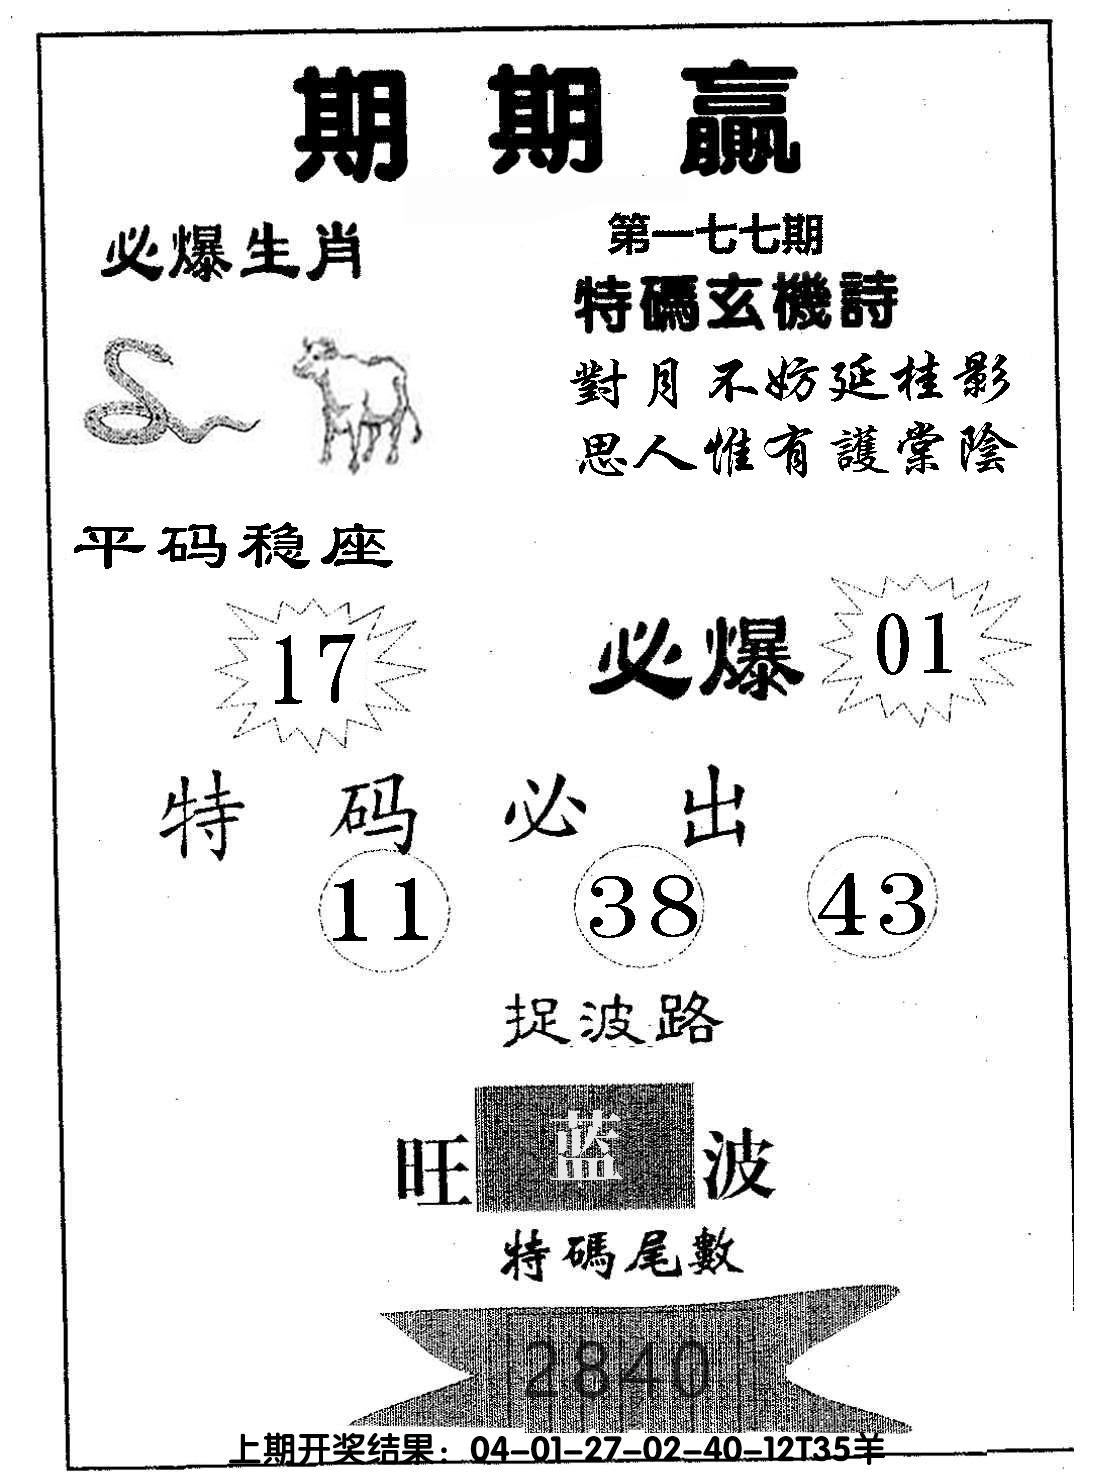 期期贏
必爆生肖
第一七七期
特碼玄機詩
對月不妨延桂影
思人惟有護棠陰
平码稳座
17
必爆 01
特码必出
11 38 43
捉波路
旺 蓝 波
特碼尾數
2840
上期开奖结果：04-01-27-02-40-12T35羊